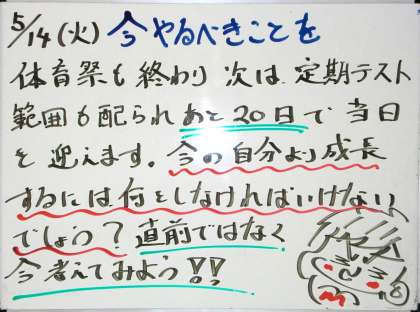 5/14(火) 今やるべきことを
体育祭も終わり次は定期テスト
範囲も配られあと20日で当日
を迎えます。今の自分より成長
するには何をしなければいけない
でしょう？直前ではなく
今考えてみよう!!